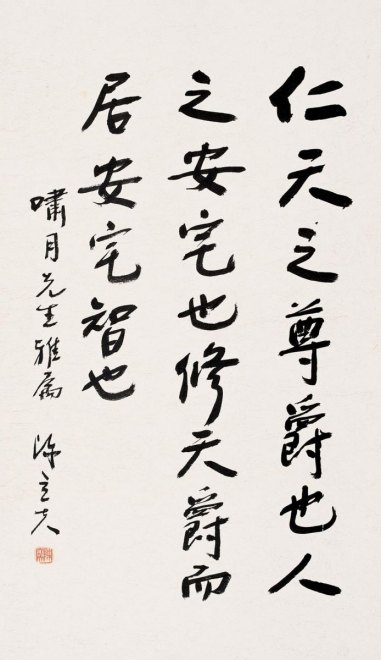 仁天之尊爵也人
之安宅也修天爵而
居安宅智也
嘯月先生雅屬
陳立夫